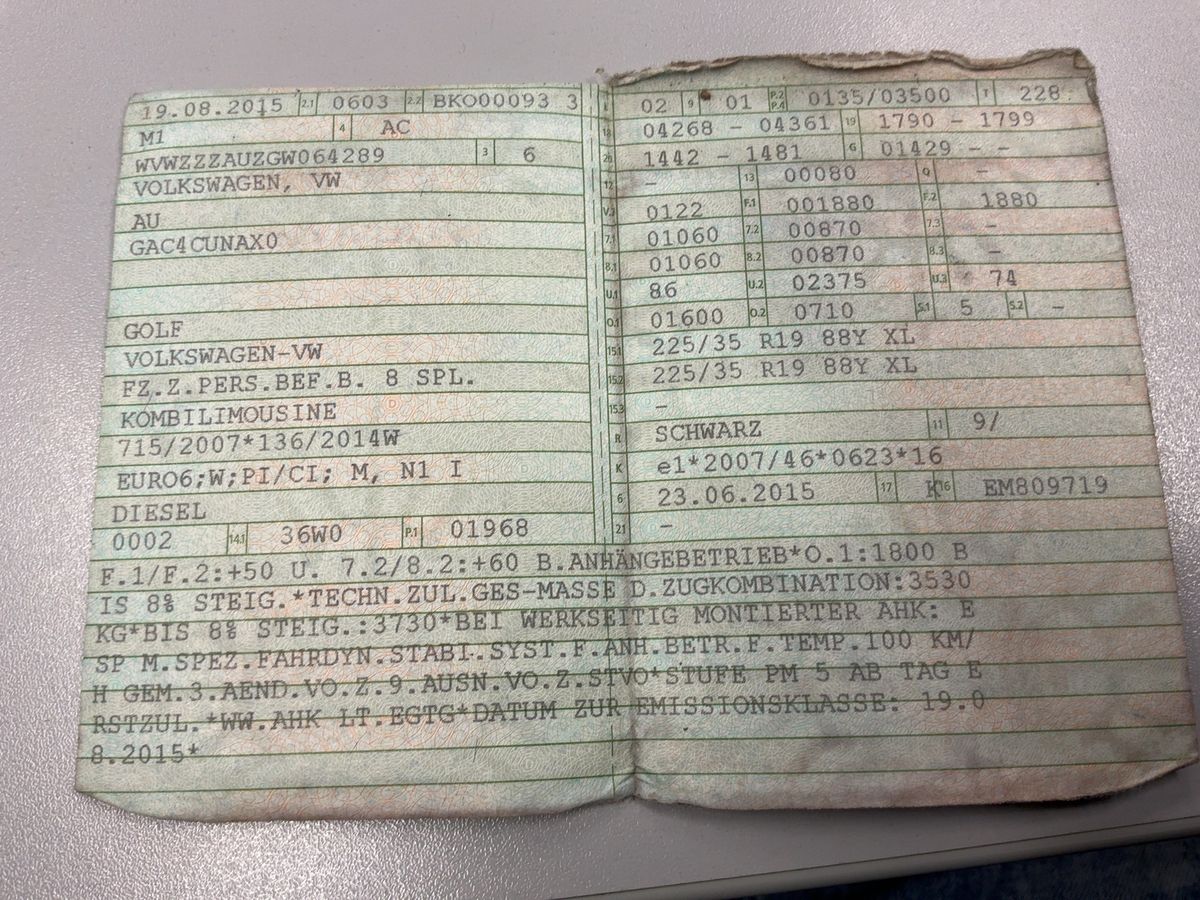 19.08.2015 2.1 0603 2.2 BKO00093 3
M1 4 AC
WVWZZZAUZGW064289 3 6
VOLKSWAGEN, VW
AU
GAC4CUNAX0
GOLF
VOLKSWAGEN-VW
FZ.Z.PERS.BEF.B. 8 SPL.
KOMBILIMOUSINE
715/2007*136/2014W
EURO6;W;PI/CI; M, N1 I
DIESEL
0002 14.1 36W0 P.1 01968
L 02 9 01 P.2 P.4 0135/03500 T 228
18 04268 - 04361 19 1790 - 1799
20 1442 - 1481 G 01429 - -
12 - 13 00080 Q -
V.7 0122 F.1 001880 F.2 1880
7.1 01060 7.2 00870 7.3 -
8.1 01060 8.2 00870 8.3 -
U.1 86 U.2 02375 U.3 74
O.1 01600 O.2 0710 S.1 5 S.2 -
15.1 225/35 R19 88Y XL
15.2 225/35 R19 88Y XL
15.3 -
R SCHWARZ 11 9/
K e1*2007/46*0623*16
6 23.06.2015 17 K 16 EM809719
21 -
F.1/F.2:+50 U. 7.2/8.2:+60 B.ANHÄNGEBETRIEB*O.1:1800 B
IS 8% STEIG.*TECHN.ZUL.GES-MASSE D.ZUGKOMBINATION:3530
KG*BIS 8% STEIG.:3730*BEI WERKSEITIG MONTIERTER AHK: E
SP M.SPEZ.FAHRDYN.STABI.SYST.F.ANH.BETR.F.TEMP.100 KM/
H GEM.3.AEND.VO.Z.9.AUSN.VO.Z.STVO*STUFE PM 5 AB TAG E
RSTZUL.*WW.AHK LT.EGTG*DATUM ZUR EMISSIONSKLASSE: 19.0
8.2015*